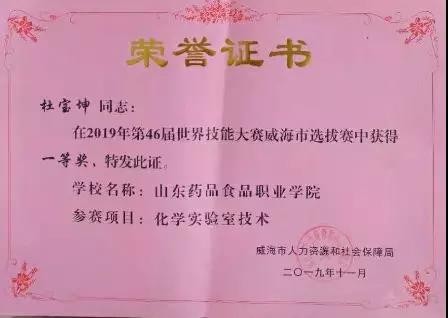 荣誉证书
杜宝坤 同志:
在2019年第46届世界技能大赛威海市选拔赛中获得
一等奖,特发此证。
学校名称:山东药品食品职业学院
参赛项目:化学实验室技术
威海市人力资源和社会保障局
二〇一九年十一月